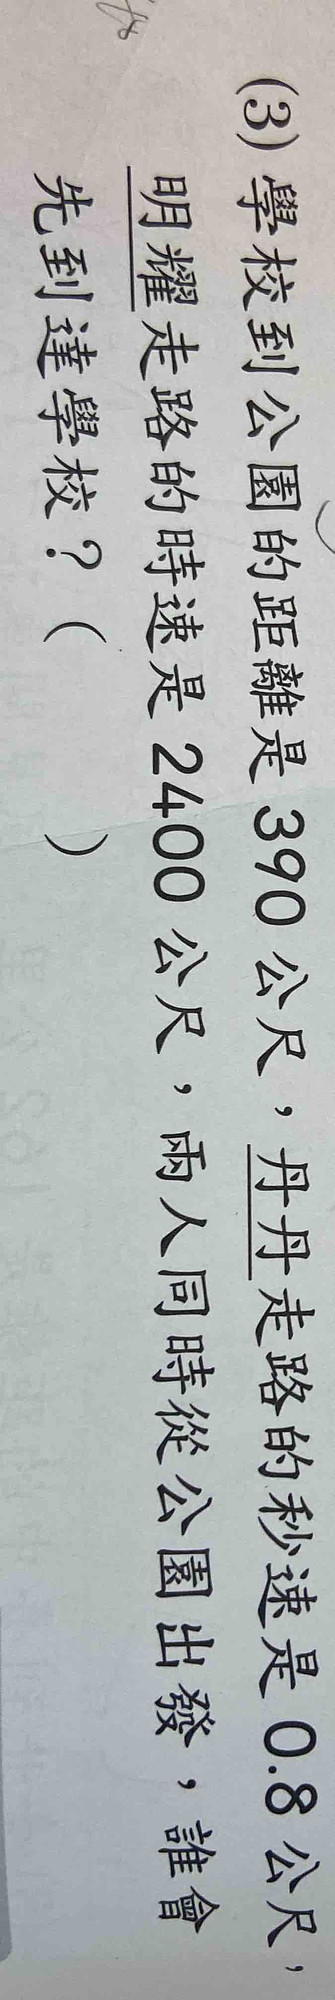 (3) 學校到公園的距離是 390 公尺，丹丹走路的秒速是 0.8 公尺，
明耀走路的時速是 2400 公尺，兩人同時從公園出發，誰會
先到達學校？（　　　）